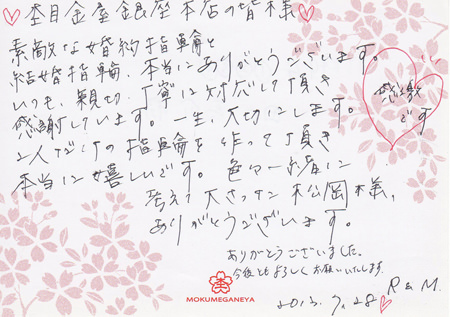 ♡杢目金屋銀座本店の皆様♡
素敵な婚約指輪と
結婚指輪、本当にありがとうございます。
いつも、親切、丁寧に対応して頂き
感謝しています。一生、大切にします。
2人だけの指輪を作って頂き
本当に嬉しいです。色々一緒に
考えて下さった松岡様、
ありがとうございます。
感激
です
ありがとうございました。
今後ともよろしくお願いいたします。
R & M.
2013. 7. 28
MOKUMEGANEYA